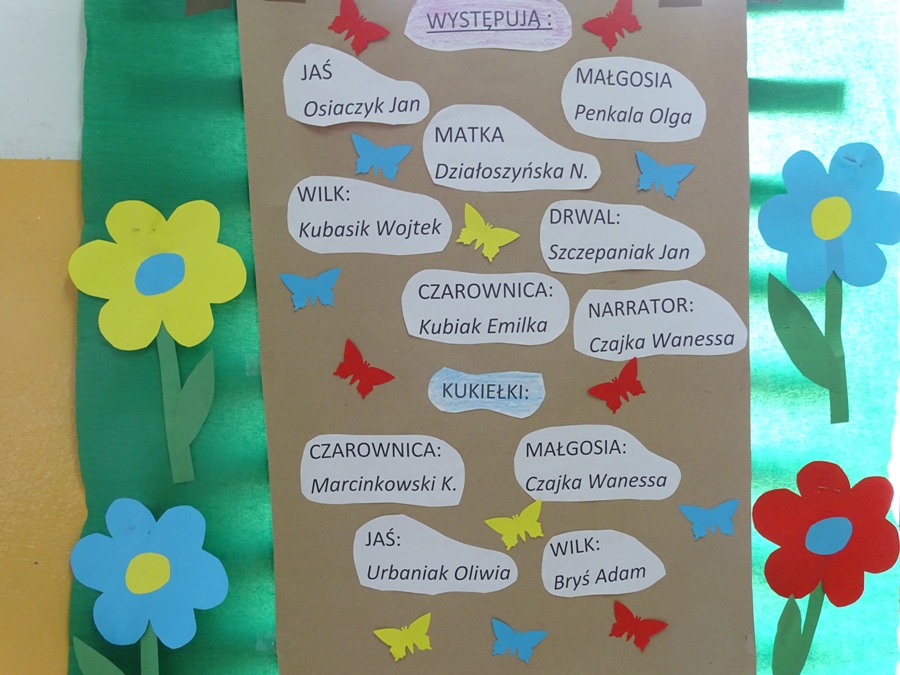 WYSTĘPUJĄ :
JAŚ
Osiaczyk Jan
MAŁGOSIA
Penkala Olga
MATKA
Działoszyńska N.
WILK:
Kubasik Wojtek
DRWAL:
Szczepaniak Jan
CZAROWNICA:
Kubiak Emilka
NARRATOR:
Czajka Wanessa
KUKIEŁKI:
CZAROWNICA:
Marcinkowski K.
MAŁGOSIA:
Czajka Wanessa
JAŚ:
Urbaniak Oliwia
WILK:
Bryś Adam